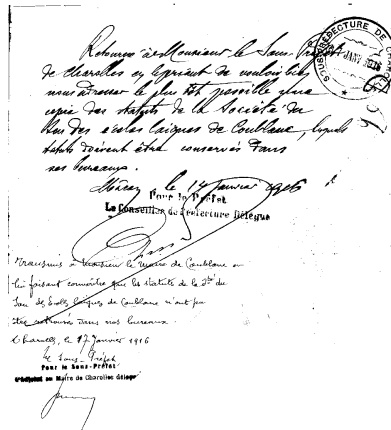 Retourné à Monsieur le Sous-Préfet
de Charolles en le priant de vouloir bien
nous adresser le plus tôt possible une
copie des statuts de la Société du
Sou des écoles laïques de Coublanc, lesquels
statuts doivent être conservés dans
ses bureaux.
Mâcon, le 14 Janvier 1916
Pour le Préfet
Le Conseiller de Préfecture Délégué
SOUS-PRÉFECTURE DE CHAROLLES
JANV 1916
Transmis à Monsieur le Maire de Coublanc en
lui faisant connaître que les statuts de la Sté du
Sou des Écoles laïques de Coublanc n'ont pu
être retrouvés dans nos bureaux.
Charolles, le 17 Janvier 1916
Le Sous-Préfet
Pour le Sous-Préfet
L'Adjoint au Maire de Charolles délégué